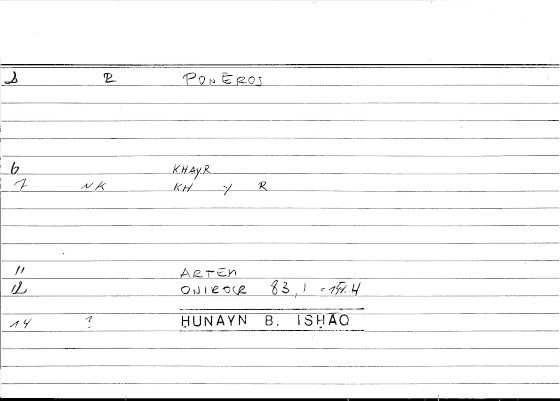 R PONĒROS
6 KHAYR
7 NK KH Y R
11 ARTEM
ONIROCR 83,1 = 4
14 ? ḤUNAYN B. ISḤĀQ